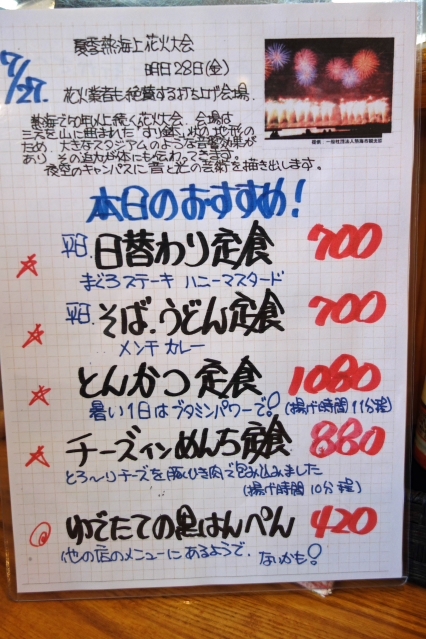 夏季熱海海上花火大会
明日28日(金)
7/27.
花火業者も絶賛する打ち上げ会場.
熱海で70年以上続く花火大会 会場は
三方を山に囲まれた"すり鉢"状の地形の
ため、大きなスタジアムのような音響効果が
あり、その迫力が体にも伝わってきます。
夜空のキャンパスに音と光の芸術を描き出します。
提供:一般社団法人熱海市観光協
本日のおすすめ!
平日.日替わり定食 700
まぐろステーキ ハニーマスタード
平日.そば.うどん定食 700
メンチカレー
とんかつ定食 1080
暑い1日はブタミンパワーで!(揚げ時間11分程)
チーズインめんち定食 880
とろ〜りチーズを豚ひき肉で包み込みました
(揚げ時間10分程)
ゆでたての黒はんぺん 420
他の店のメニューにあるようで、ないかも!